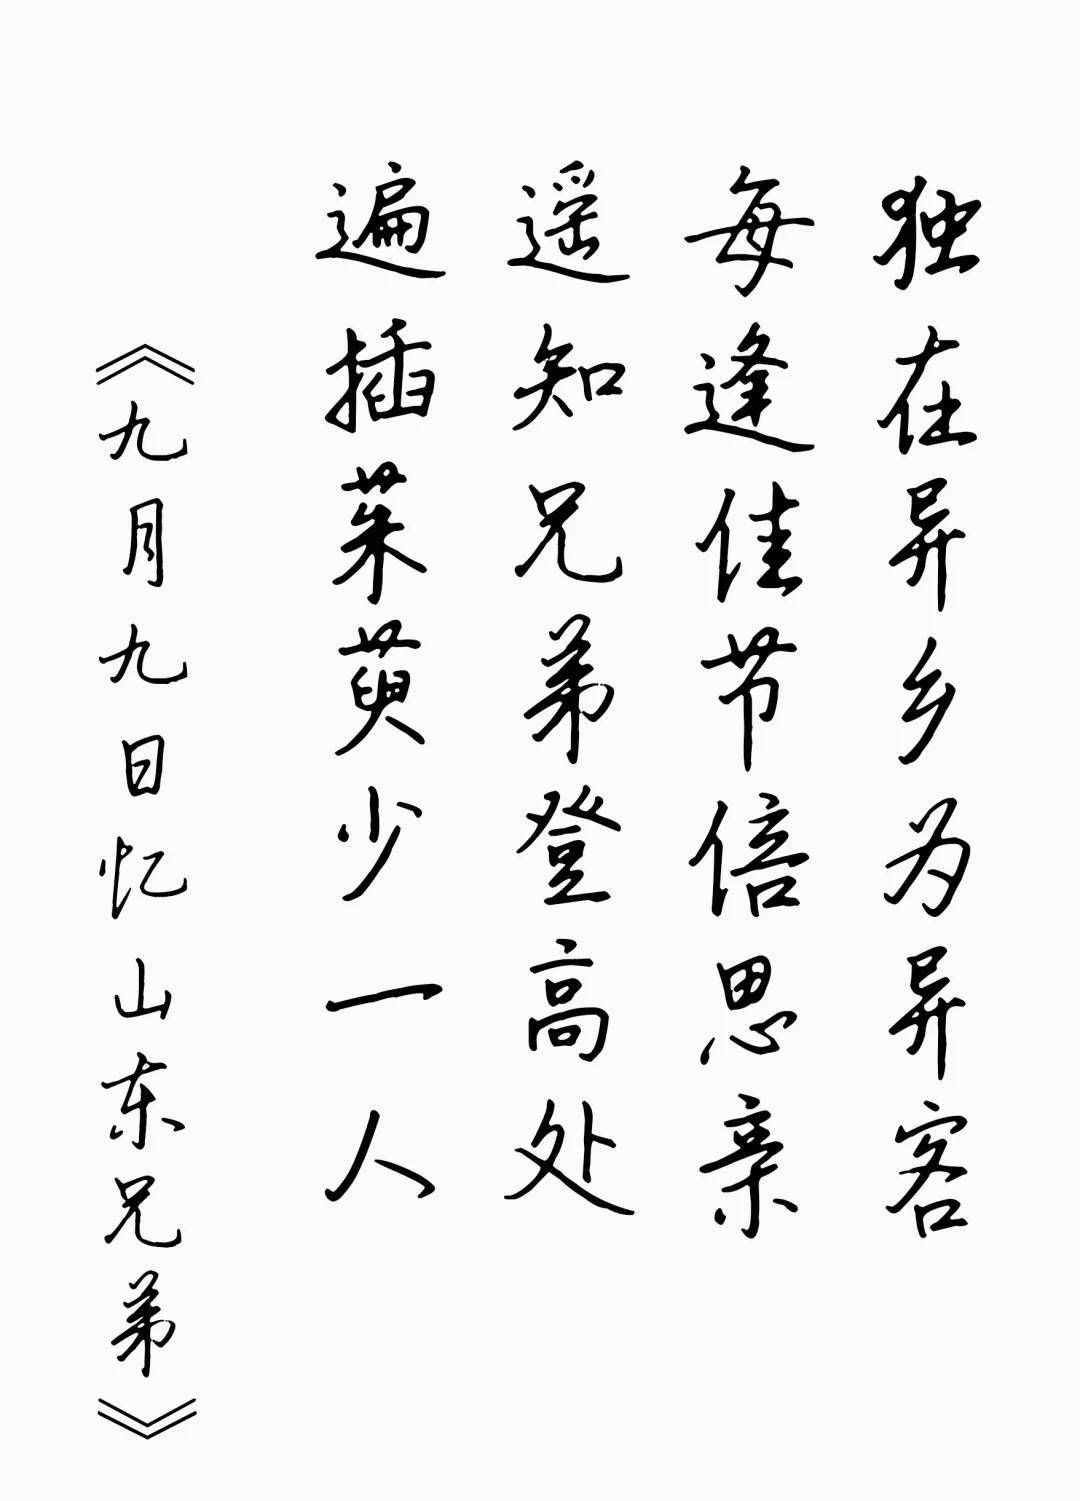 独在异乡为异客
每逢佳节倍思亲
遥知兄弟登高处
遍插茱萸少一人
《九月九日忆山东兄弟》